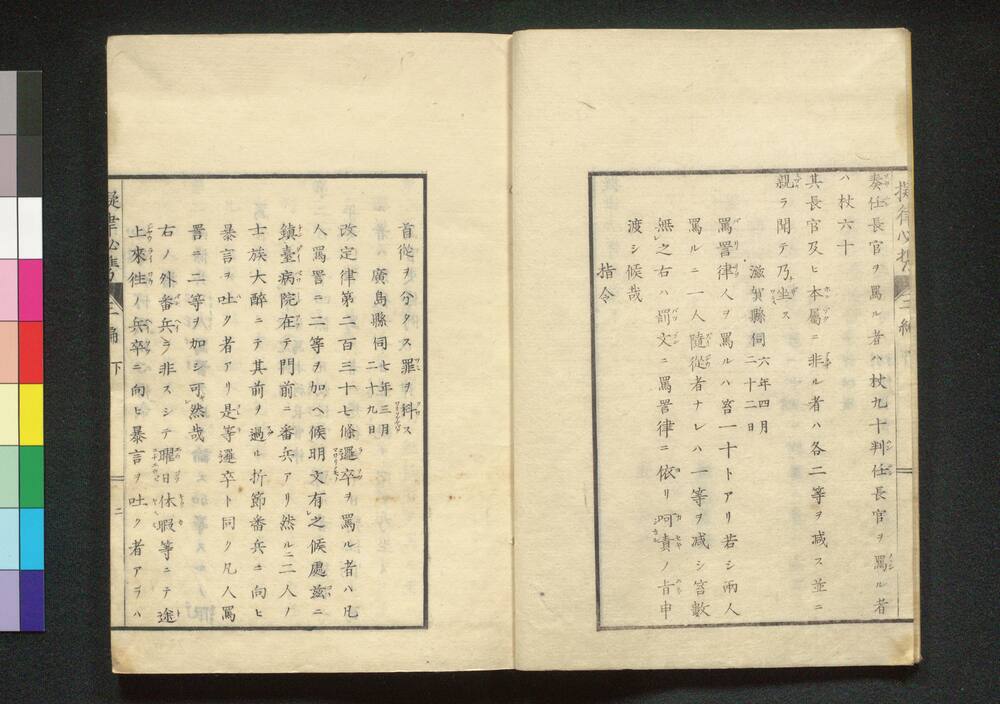 奏任長官ヲ罵ル者ハ杖九十判任長官ヲ罵ル者
ハ杖六十
其長官及ヒ本屬ニ非ル者ハ各二等ヲ減ス並ニ
親ラ聞テ乃坐ス
滋賀縣伺 六年四月二十二日
罵詈律人ヲ罵ルハ笞一十トアリ若シ兩人
罵ルニ一人隨從者ナレハ一等ヲ減シ笞數
無之右ハ罰文ニ罵詈律ニ依リ呵責ノ旨申
渡シ候哉
指令
首從ヲ分タス罪ヲ科ス
廣島縣伺 七年三月二十九日
改定律第二百三十七條邏卒ヲ罵ル者ハ凡
人罵詈ニ二等ヲ加ヘ候明文有之候處茲ニ
鎮臺病院在テ門前ニ番兵アリ然ルニ二人ノ
士族大醉ニテ其前ヲ過ル折節番兵ニ向ヒ
暴言ヲ吐ク者アリ是等邏卒ト同ク凡人罵
詈ニ二等ヲ加シ可然哉
右ノ外番兵ニ非スシテ曜日休暇等ニテ途
上來往ノ兵卒ニ向ヒ暴言ヲ吐ク者アラハ
三編 下
二